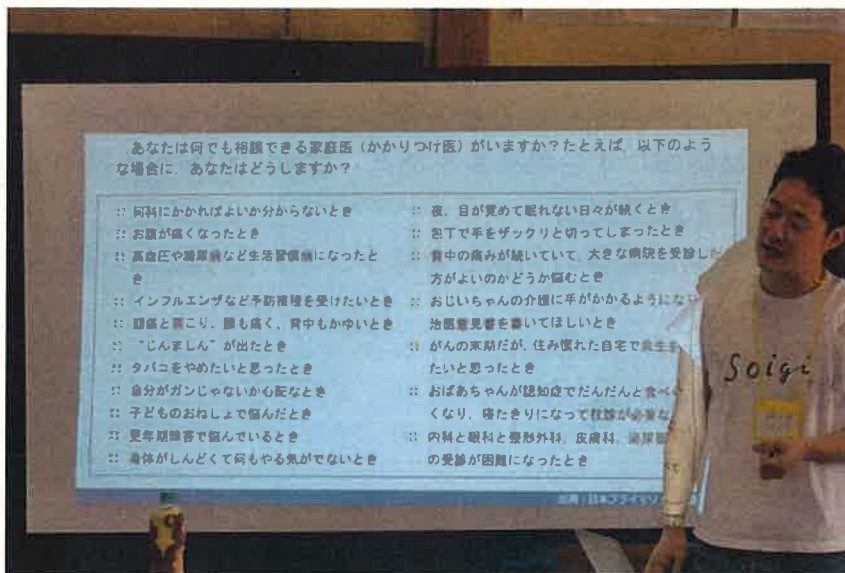 あなたは何でも相談できる家庭医（かかりつけ医）がいますか？たとえば、以下のよう
な場合に、あなたはどうしますか？
:: 何科にかかればよいか分からないとき
:: お腹が痛くなったとき
:: 高血圧や糖尿病など生活習慣病になったと
き
:: インフルエンザなど予防接種を受けたいとき
:: 頭痛と肩こり、腰も痛く、背中もかゆいとき
:: “じんましん”が出たとき
:: タバコをやめたいと思ったとき
:: 自分がガンじゃないか心配なとき
:: 子どものおねしょで悩んだとき
:: 更年期障害で悩んでいるとき
:: 身体がしんどくて何もやる気がでないとき
:: 夜、目が覚めて眠れない日々が続くとき
:: 包丁で手をザックリと切ってしまったとき
:: 背中の痛みが続いていて、大きな病院を受診した
方がよいのかどうか悩むとき
:: おじいちゃんの介護に手がかかるようにな
治医意見書を書いてほしいとき
:: がんの末期だが、住み慣れた自宅で
たいと思ったとき
:: おばあちゃんが認知症でだんだんと食べ
くなり、寝たきりになって往診が必要な
:: 内科と眼科と整形外科、皮膚科、泌尿器
の受診が困難になったとき
出典：日本プライマリ
Soigi